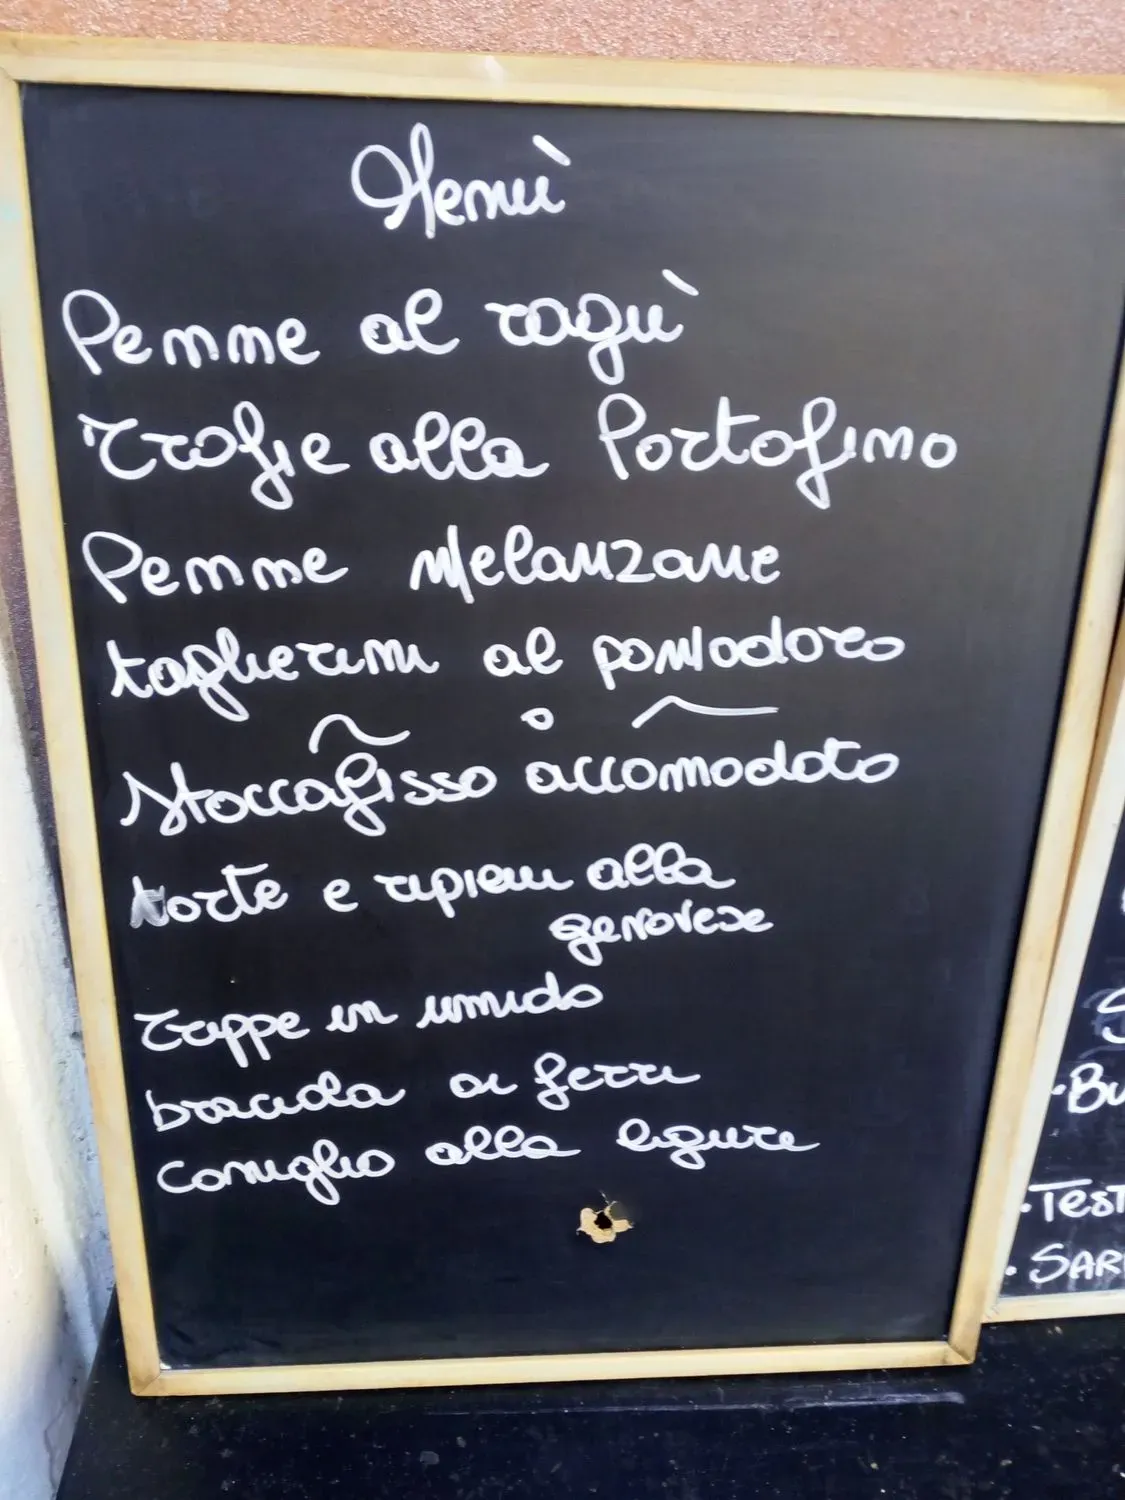 Menù
Penne al ragù
Trofie alla Portofino
Penne Melanzane
taglierini al pomodoro
~ o ~
Stoccafisso accomodato
torte e ripieni alla
genovese
Trippe in umido
braciola ai ferri
Coniglio alla ligure
S
·BU
·TEST
·SAR